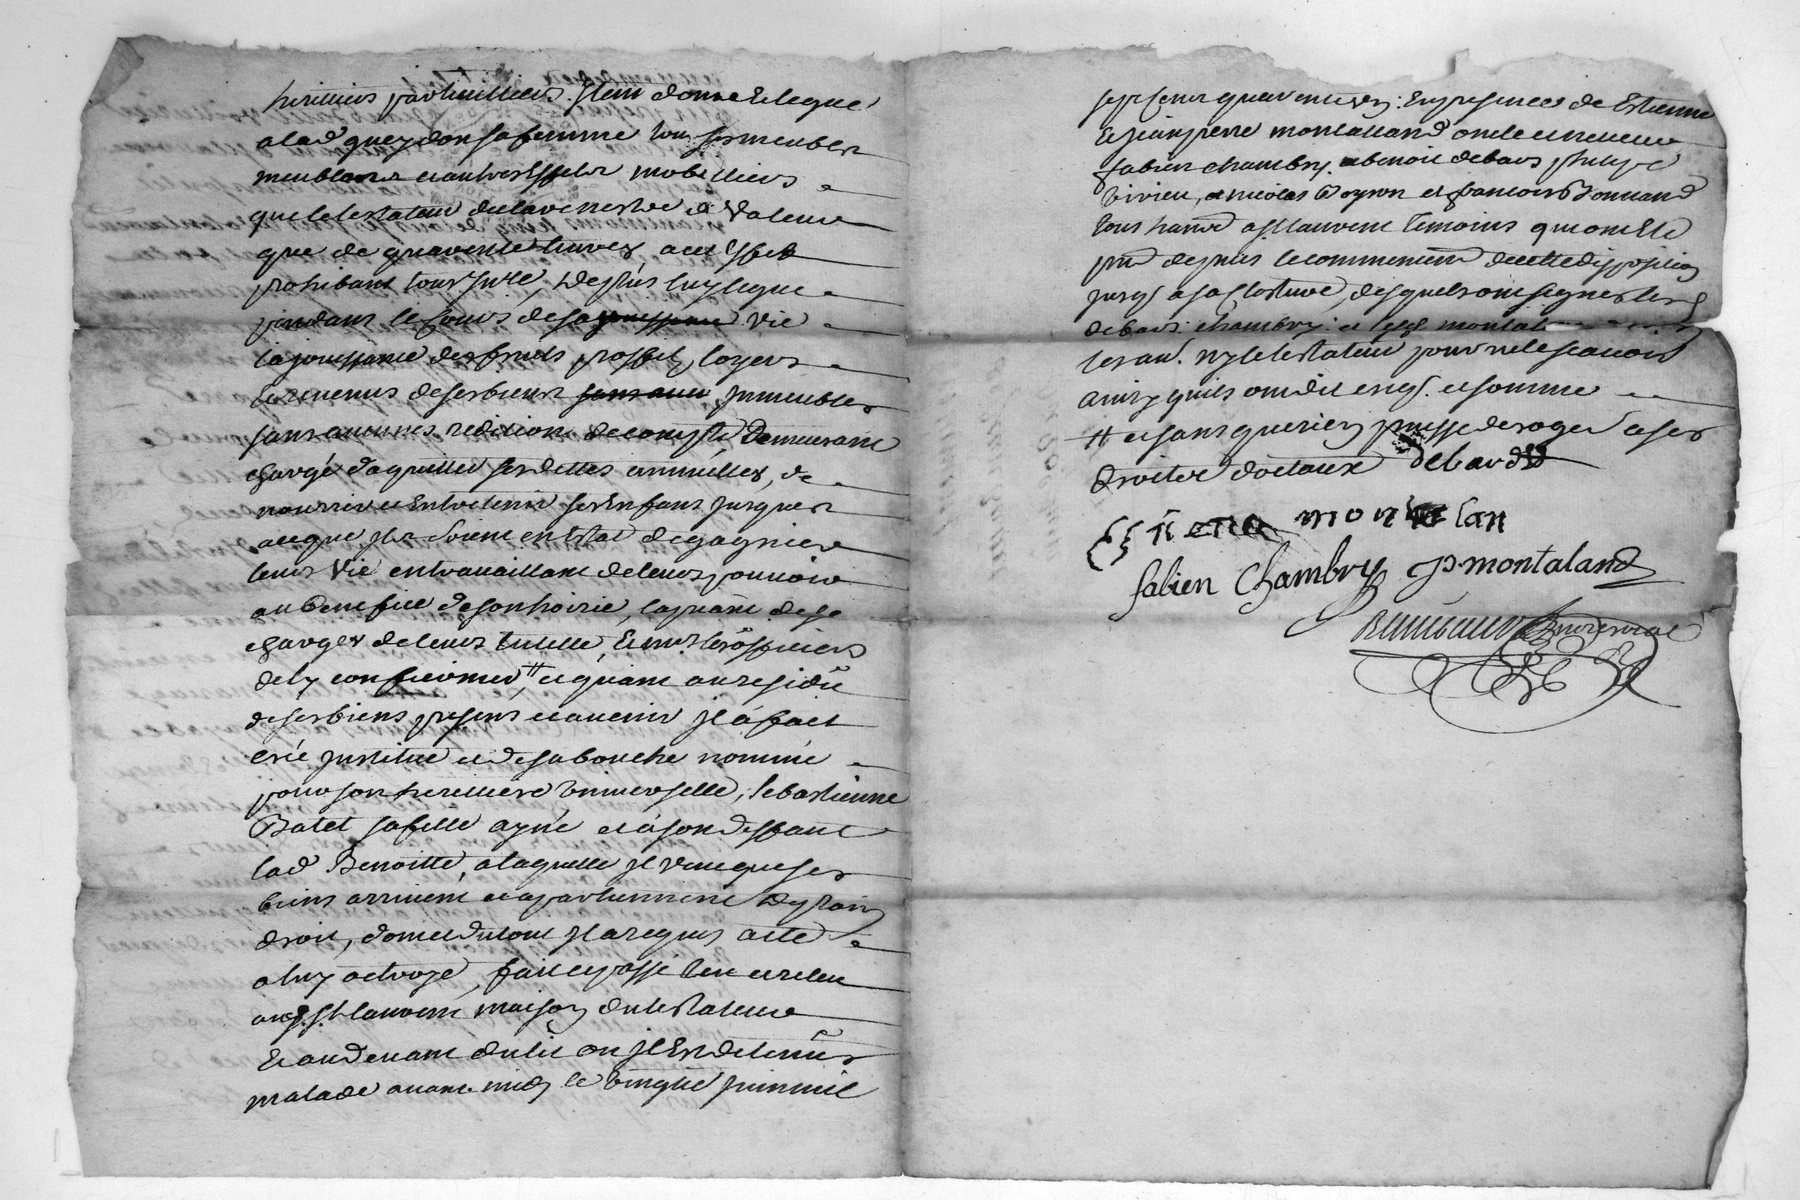 heritiers particulliers. Item donne et legue
a lad gueydon sa femme tous ses meubles
meublans et autres effets mobilliers
que le testateur declare n'estre de valeur
que de quarente livres a cet effet
prohibant tout De plus luy legue
pendant le cours de sa jouissance vie
la jouissance des fruits, proffits, loyers
et revenus de ses biens sans aucu immeubles
sans aucunes redition de compte, Demeurant
chargé d'aquitter ses dettes annuelles, de
nourrir et entretenir ses enfans jusques
a ce que ils soient en estat de gagnier
leurs vie en travaillant de leurs pouvoir
au benefice de son hoirie, la priant de se
charger de leurs tutelle, et mrs les officiers
de ly confirmer # et quant au residu
de ses biens presens et avenir il a fait
créé institué et de sa bouche nommé
pour son heritiere universelle, Sebastienne
Batet sa fille aynée et a son deffaut
lad Benoitte, a laquelle il veut que ses
biens arrivent et apartiennent de plain
droit, dont et du tout il a requis acte
a luy octroyé, fait et passé leu et releu
aud St laurent maison du testateur
et au devant du lit ou il est detenus
malade avant midy le vingt juin mil
sept cent quarente En presence de Estienne
et jean pierre montalland oncle et neveux
fabien chambry, benoit debard,
Vivien, nicolas Poyron et francois Bonnand
tous dud St laurent temoins qui ont été
pnt depuis le commencemt de cette disposition
jusqs a sa closture, desquels ont signes les
debard chambry et lesd montaland
les aut. ny le testateur pour ne le scavoir
ainsy quils ont dit enqs. et sommé
# et sans que rien puisse deroger a ses
droits dotaux debard
Etiene montelan
fabien Chambry jp montaland